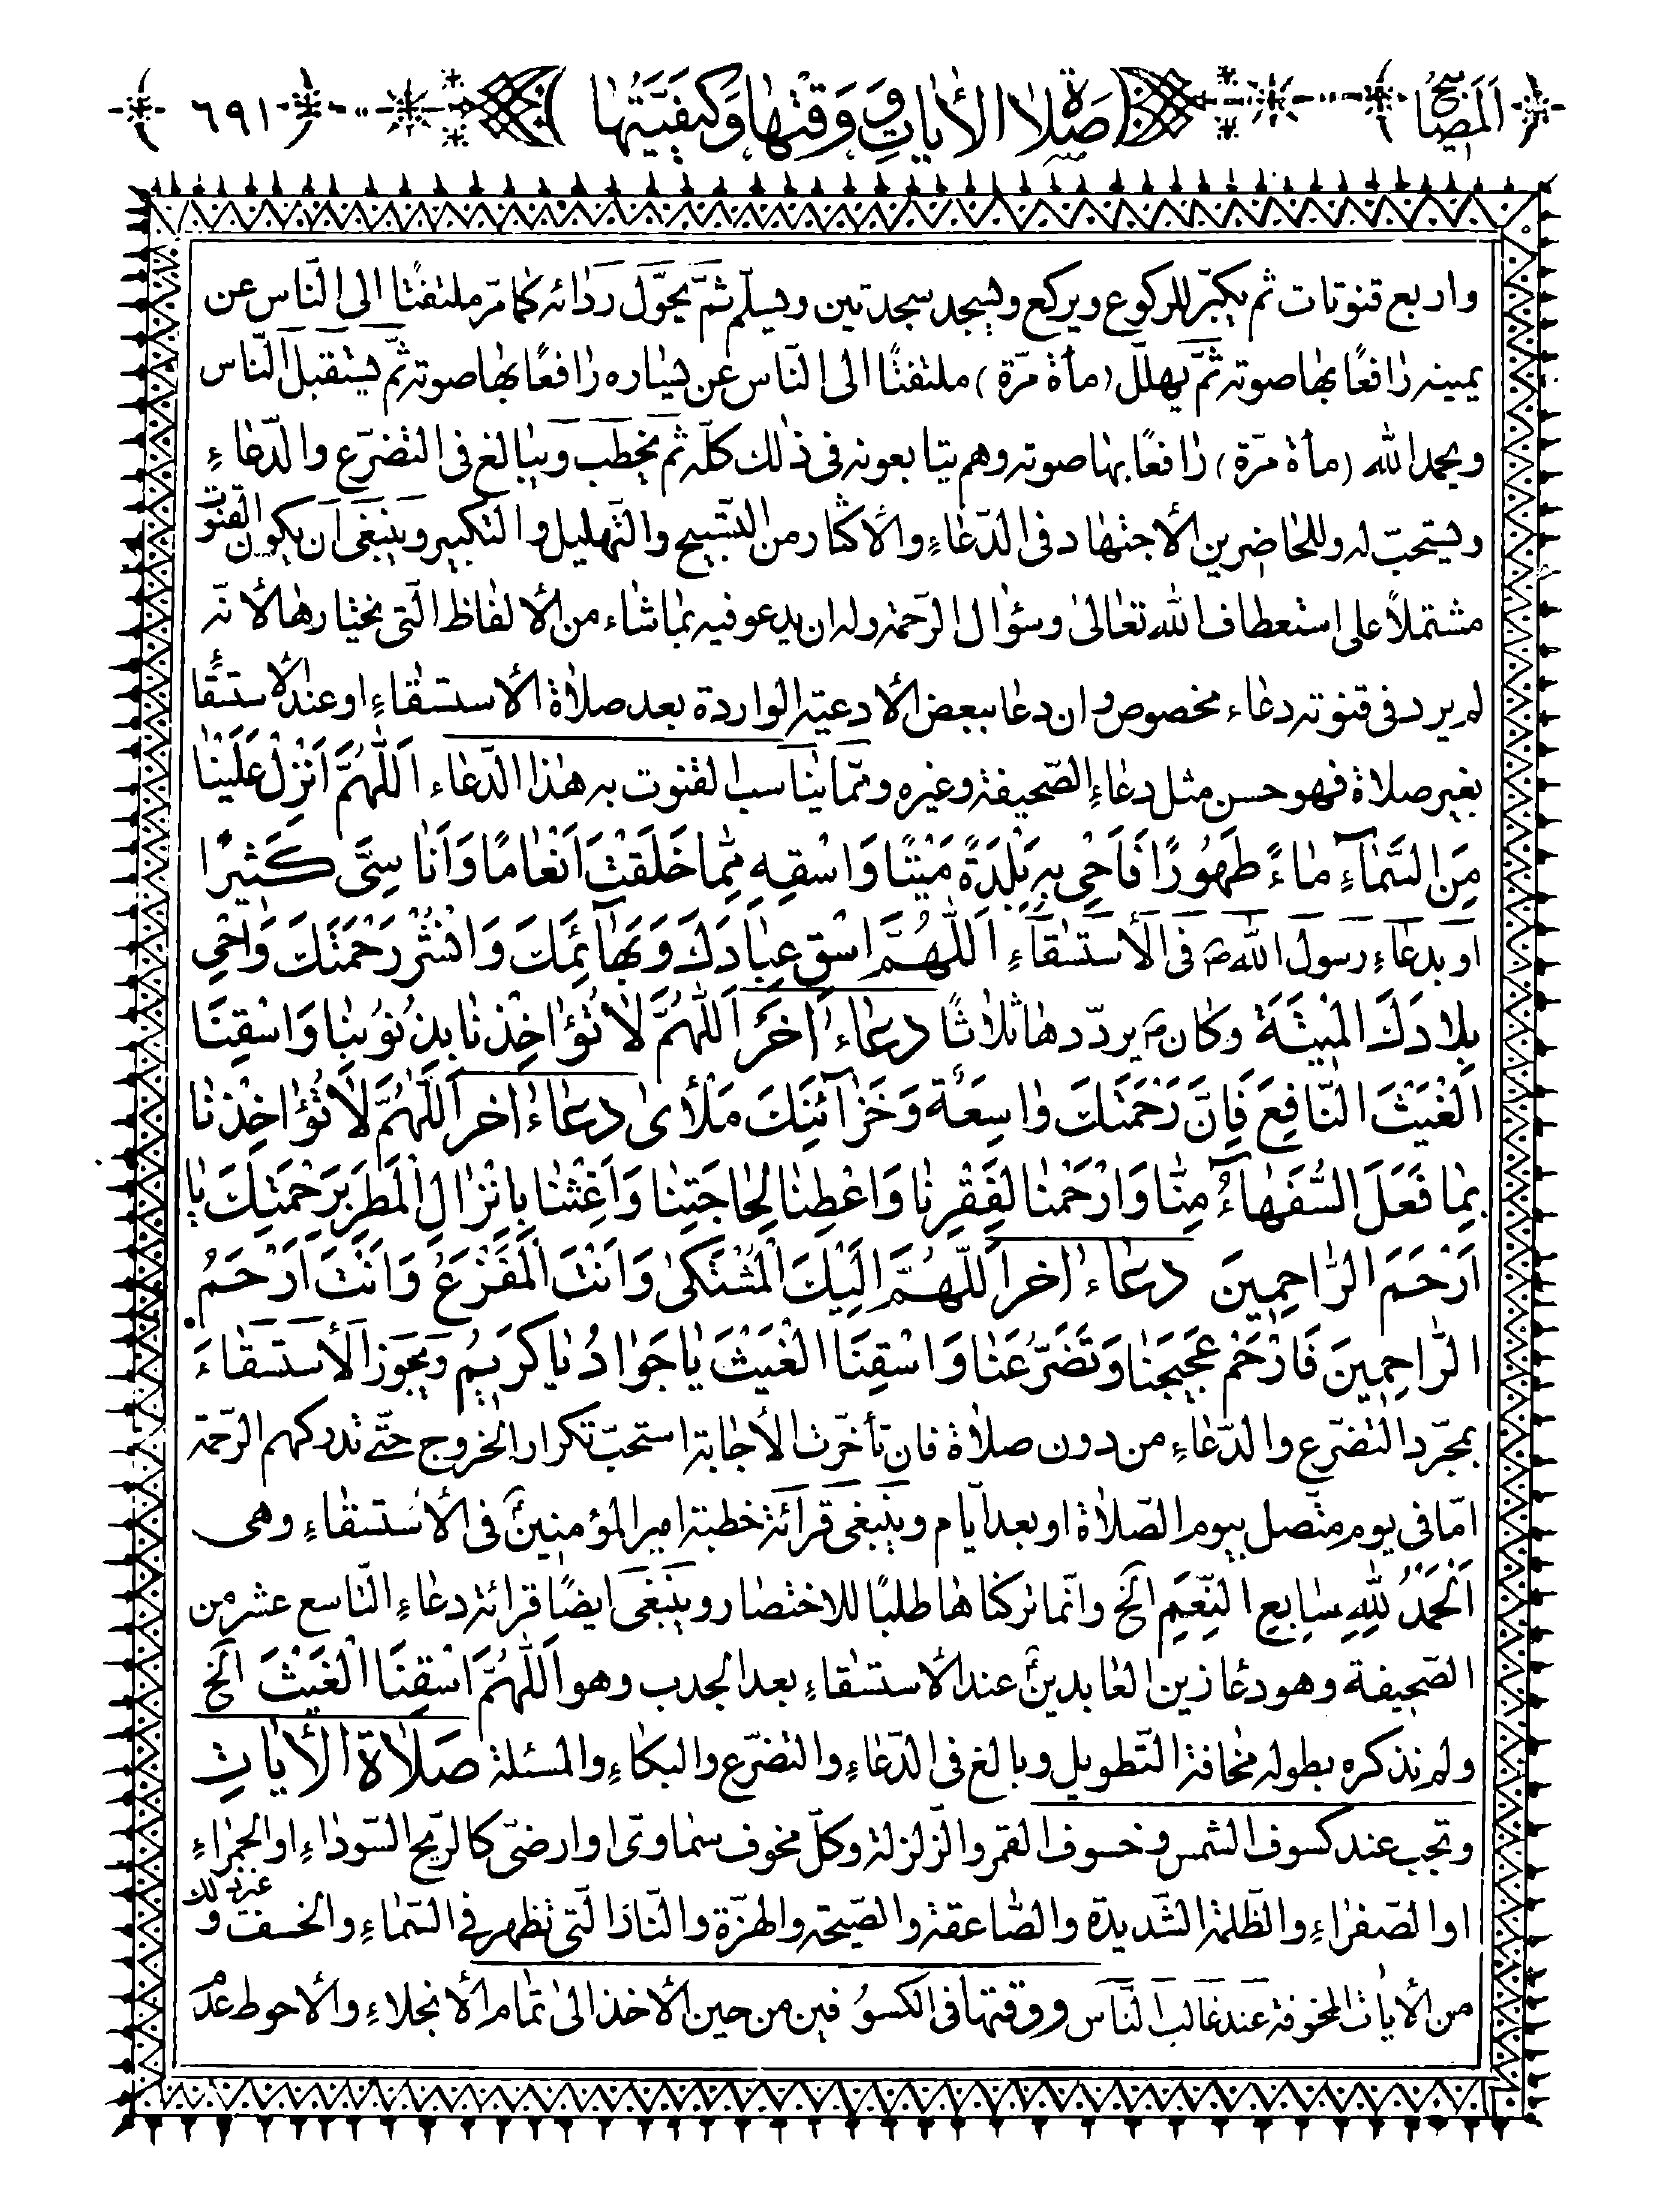 اَلْمَصٰابيحُ صَلاةُ الأٰيٰاتِ وَوَقْتُهٰا وَكَيْفِيَّتُهٰا ٦٩١
واربع قنوتات ثم يكبّر للركوع ويركع ويسجد سجدتين ويسلّم ثمّ يحوّل ردٰائه كمٰا مرّ ملتفتًا الى النّاس عن
يمينه رٰافعًا بهٰا صوته ثمّ يهلّل (مأة مرّة) ملتفتًا الى النّاس عن يسٰاره رٰافعًا بهٰا صوته ثمّ يستقبل النّاس
ويحمد الله (مأة مرّة) رٰافعًا بهٰا صوته وهم يتابعونه فى ذٰلك كلّه ثم يخطب ويبٰالغ فى التضرّع والدّعٰاءِ
ويستحبّ له وللحٰاضرين الأجتهٰاد فى الدّعٰاءِ والأكثٰار من التسبيح والتّهليل والتكبير وينبغى ان يكون القنوت
مشتملاً على استعطاف الله تعٰالىٰ وسؤال الرّحمة وله ان يدعو فيه بمٰا شٰاء من الألفٰاظ الّتى يختٰارهٰا لأنّه
لم يرد فى قنوته دعٰاء مخصوص وان دعٰا ببعض الأدعية الواردة بعد صلاٰة الأستسقٰاءِ او عند الأستسقٰاءِ
بغير صلاة فهو حسن مثل دعٰاءِ الصّحيفة وغيره وممّا ينٰاسب القنوت به هٰذا الدّعٰاء اَللّٰهُمَّ اَنْزِلْ عَلَيْنٰا
مِنَ السَّمٰآءِ مٰاءً طَهُورًا فَاَحْىِ بِهِ بَلْدَةً مَيْتًا وَاسْقِهِ مِمّٰا خَلَقْتَ اَنْعٰامًا وَاَنٰاسِىَّ كَثيرًا
او بدعٰاءِ رسول الله ص فى الأستسقٰاءِ اَللّٰهُمَّ اسْقِ عِبٰادَكَ وَبَهٰآئِمَكَ وَانْشُرْ رَحْمَتَكَ وَاَحْىِ
بِلاٰدَكَ الْمَيْتَةَ وكٰان ص يردّدهٰا ثلاٰثًا دعٰاء اٰخَر اَللّٰهُمَّ لاٰ تُؤٰاخِذْنٰا بِذُنُوبِنٰا وَاسْقِنَا
الْغَيْثَ النّٰافِعَ فَاِنَّ رَحْمَتَكَ وٰاسِعَةٌ وَخَزٰآئِنَكَ مَلْأىٰ دعٰاء اٰخر اَللّٰهُمَّ لاٰ تُؤٰاخِذْنٰا
بِمٰا فَعَلَ السُّفَهٰآءُ مِنّٰا وَارْحَمْنٰا لِفَقْرِنٰا وَاَعْطِنٰا لِحٰاجَتِنٰا وَاَغِثْنٰا بِاِنْزٰالِ الْمَطَرِ بِرَحْمَتِكَ يٰا
اَرْحَمَ الرّٰاحِمِينَ دعٰاء اٰخر اَللّٰهُمَّ اِلَيْكَ الْمُشْتَكىٰ وَاَنْتَ الْمَفْزَعُ وَاَنْتَ اَرْحَمُ
الرّٰاحِمِينَ فَارْحَمْ عَجيجَنٰا وَتَضَرُّعَنٰا وَاسْقِنَا الْغَيْثَ يٰا جَوٰادُ يٰا كَرِيمُ ويجوز الأستسقٰاءَ
بمجرّد التضرّع والدّعٰاءِ من دون صلاٰة فان تأخّرت الأجٰابة استحبّ تكرار الخروج حتّى تدركهم الرّحمة
امّا فى يوم متّصل بيوم الصّلاٰة او بعد ايّام وينبغى قرائة خطبة امير المؤمنين ع فى الأستسقٰاءِ وهى
اَلْحَمْدُ لِلّٰهِ سٰابِغِ النِّعَمِ الخ وانّما تركنٰاهٰا طلبًا للاختصٰار وينبغى ايضًا قرائة دعٰاءِ التّاسع عشر من
الصّحيفة وهو دعٰا زين العٰابدين ع عند الأستسقٰاءِ بعد الجدب وهو اَللّٰهُمَّ اسْقِنَا الْغَيْثَ الخ
ولم نذكره بطوله مخٰافة التّطويل وبالغ فى الدّعٰاءِ والتضرّع والبكٰاءِ والمسئلة صَلاٰة الأٰيٰاتِ
وتجب عند كسوف الشمس وخسوف القمر والزّلزلة وكلّ مخوف سمٰاوىّ او ارضىّ كالرّيح السّودٰاءِ او الحمرٰاءِ
او الصّفرٰاءِ والظّلمة الشّديدة والصّاعقة والصّيحة والهزّة والنّار الّتى تظهر فى السّمٰاءِ والخسف وغير ذلك
من الأيٰات المخوفة عند غالب النّاس ووقتهٰا فى الكسوفين من حين الأخذ الىٰ تمٰام الأنجلاءِ والأحوط عدم